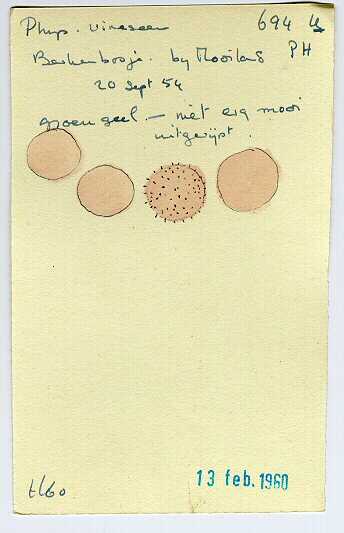 Phys. virescen 694
Berkenbosje. by Mooiland PH
20 Sept 54
groen geel — niet erg mooi
uitgerijpt.
13 feb. 1960